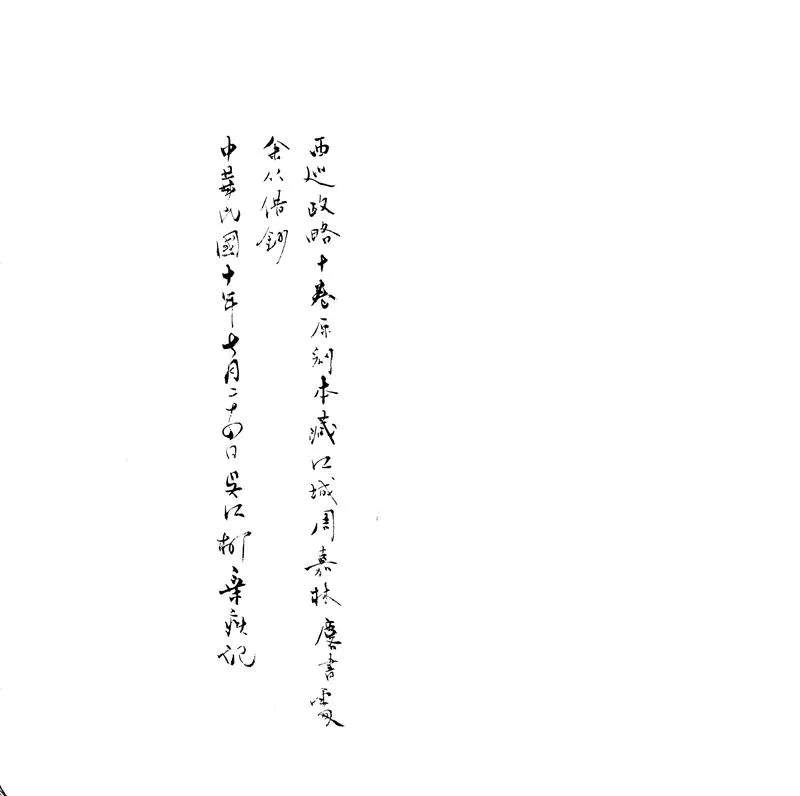 西巡政略十卷原刻本藏江城周嘉林麐書處
余从借鈔
中華民國十年七月二十四日吳江柳棄疾記